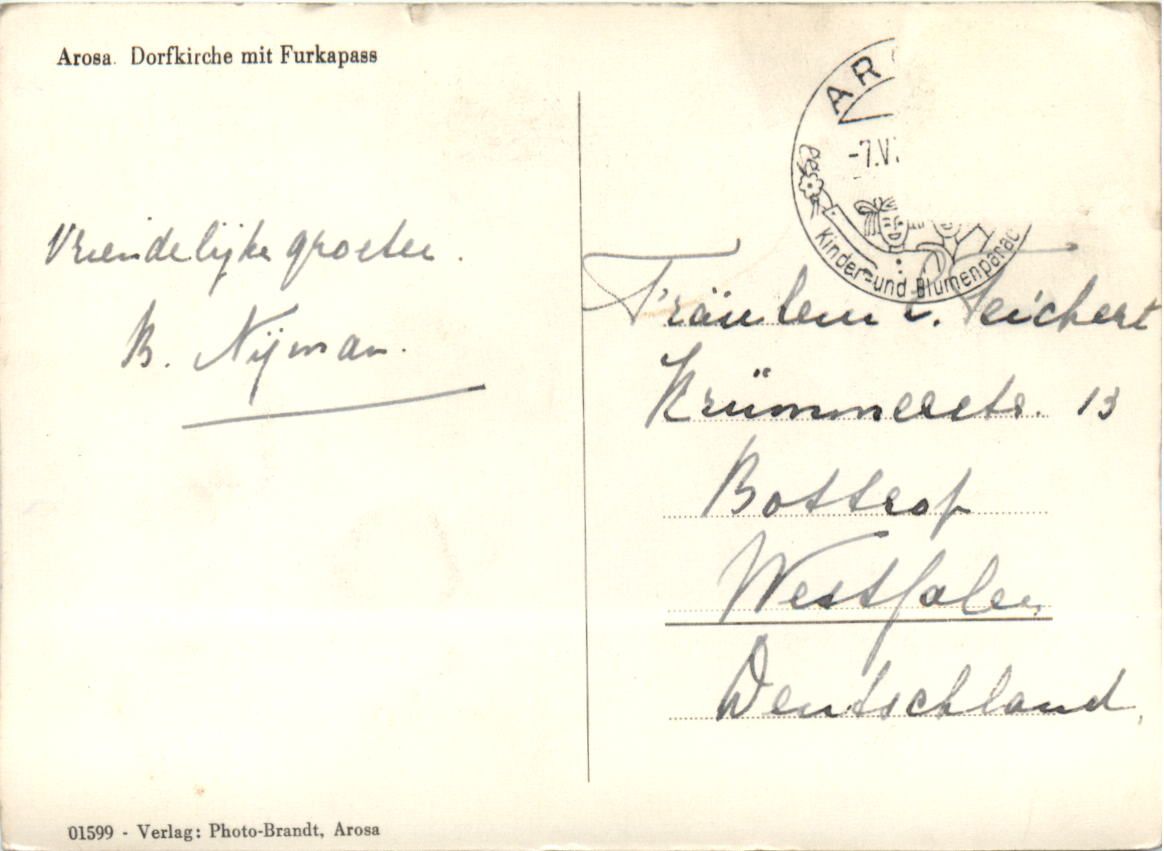 Arosa. Dorfkirche mit Furkapass
Vriendelijke groeten.
B. Nijman.
ARO
-7.VI
Kinder- und Blumenparad
Fräulein
Krümmerstr. 13
Bottrop
Westfalen
Deutschland,
01599 - Verlag: Photo-Brandt, Arosa